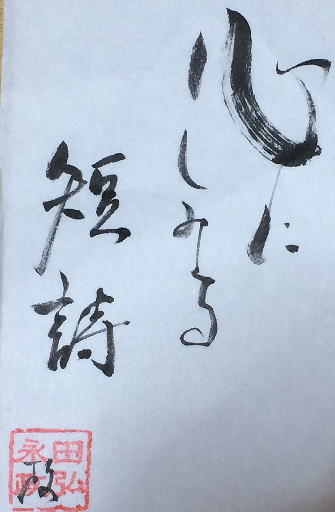 心に
しみる
短詩
政
永田
政弘